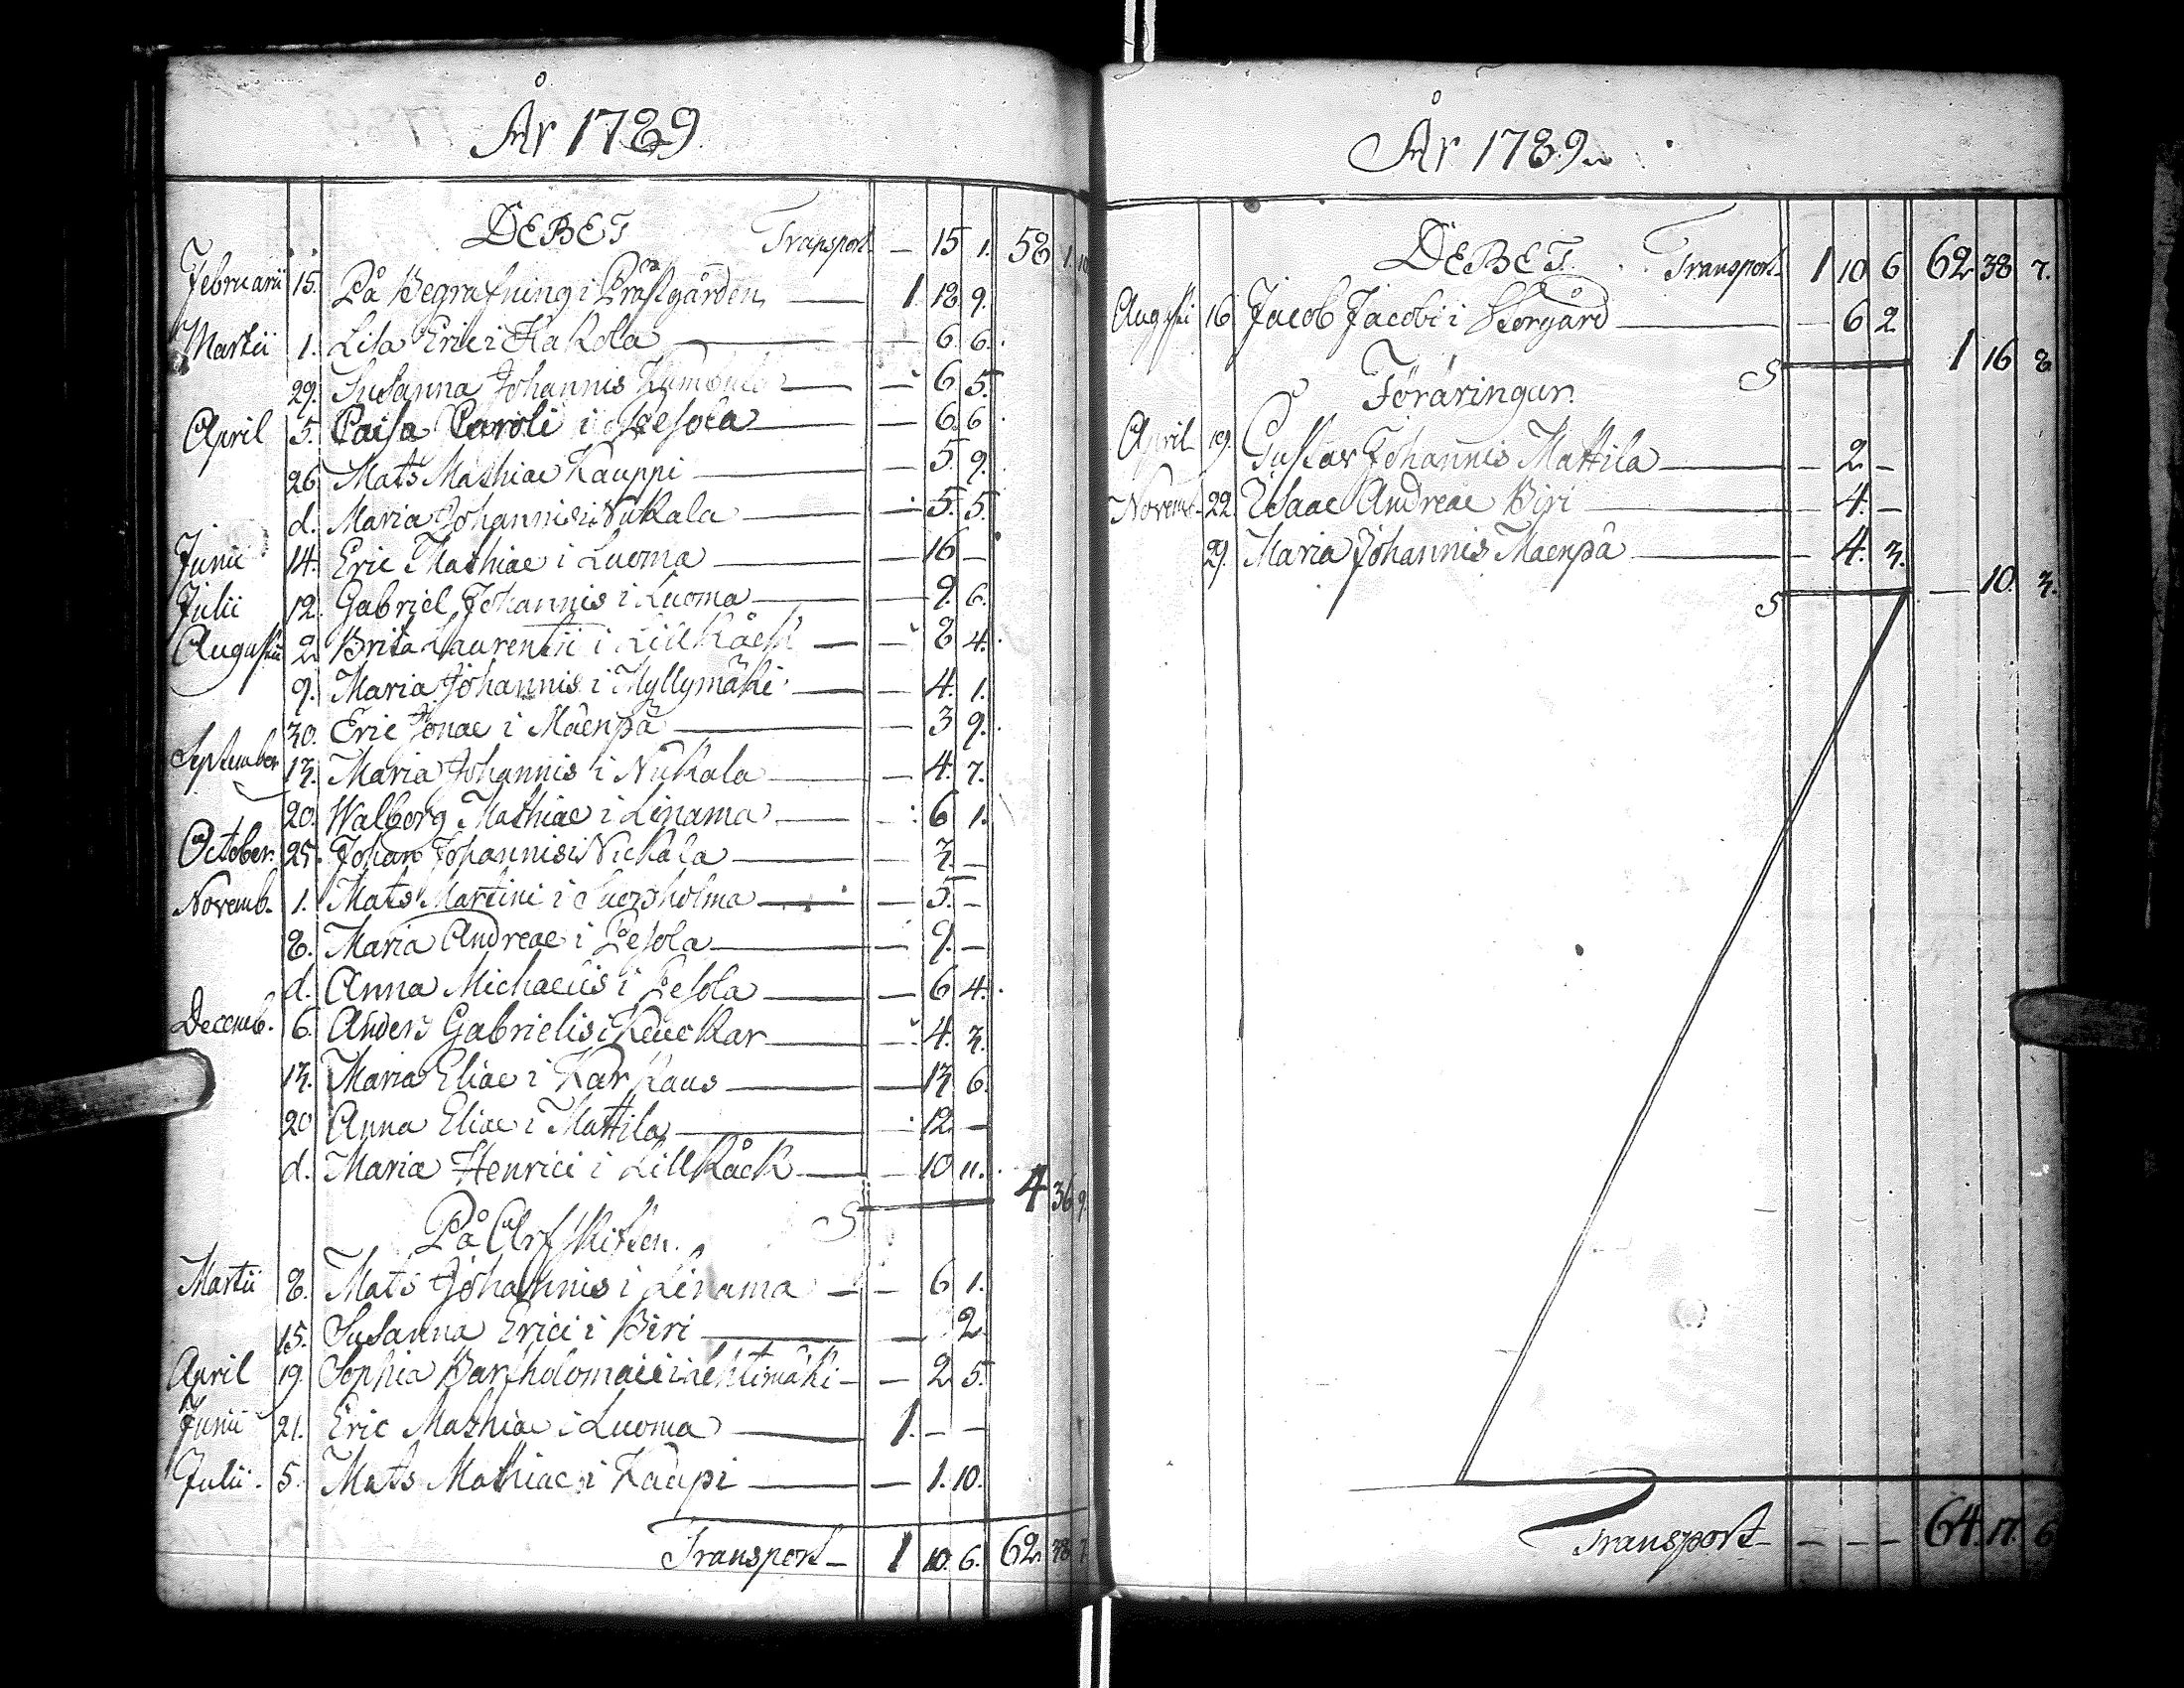 År 1789.
DEBET Transport — 15 1. 58 1. 10
Februarii 15. På Begrafning i Prästgården — 1. 18 9.
Martii 1. Lisa Erici i Kakola — — 6. 6.
29. Susanna Johannis — — 6 5.
April 5. Caisa Caroli i Pesola — — 6. 6.
26. Mats Mathiae Kauppi — — 5. 9.
d. Maria Johannis i Nickala — — 5. 5.
Junii 14. Eric Mathiae i Luoma — — 16 —
Julii 12. Gabriel Johannis i Luoma — — 9. 6.
Augusti 2. Brita Laurentii i Lillkåck — — 8 4.
9. Maria Johannis i Myllymäki — — 4. 1.
30. Eric Jonae i Mäenpä — — 3 9.
September 13. Maria Johannis i Nickala — — 4. 7.
20. Walborg Mathiae i Linama — — 6 1.
October. 25. Johan Johannis i Nickala — — 3. —
Novemb. 1. Mats Martini i — — 5. —
8. Maria Andreae i Pesola — — 9. —
d. Anna Michaelis i Pesola — — 6 4.
Decemb. 6. Anders Gabrielis i — — 4. 3.
13. Maria Eliae i Karhaus — — 13 6.
20 Anna Eliae i Mattila — — 12. —
d. Maria Henrici i Lillkåck — — 10 11.
S 4 36 9.
På Arfskiften.
Martii 8. Mats Johannis i Linama — — 6 1.
15. Susanna Erici i Biri — — 2
April 19. Sophia Bartholomaei i Lehtimäki — — 2 5.
Junii 21. Eric Mathiae i Luoma — 1. — —
Julii. 5. Mats Mathiae i Kaupi — — 1. 10.
Transport — 1 10. 6. 62 38 7
År 1789.
DEBET. Transport 1 10 6 62 38 7.
Augusti 16 Jacob Jacobi i Storgård — — 6 2
S 1 16 8
Föräringar.
April 19. Gustav Johannis Mattila — — 2 —
Novemb. 22. Isaac Andreae Biri — — 4. —
29. Maria Johannis Maenpä — — 4. 3.
S — 10. 3.
Transport — — — — 64. 17. 6